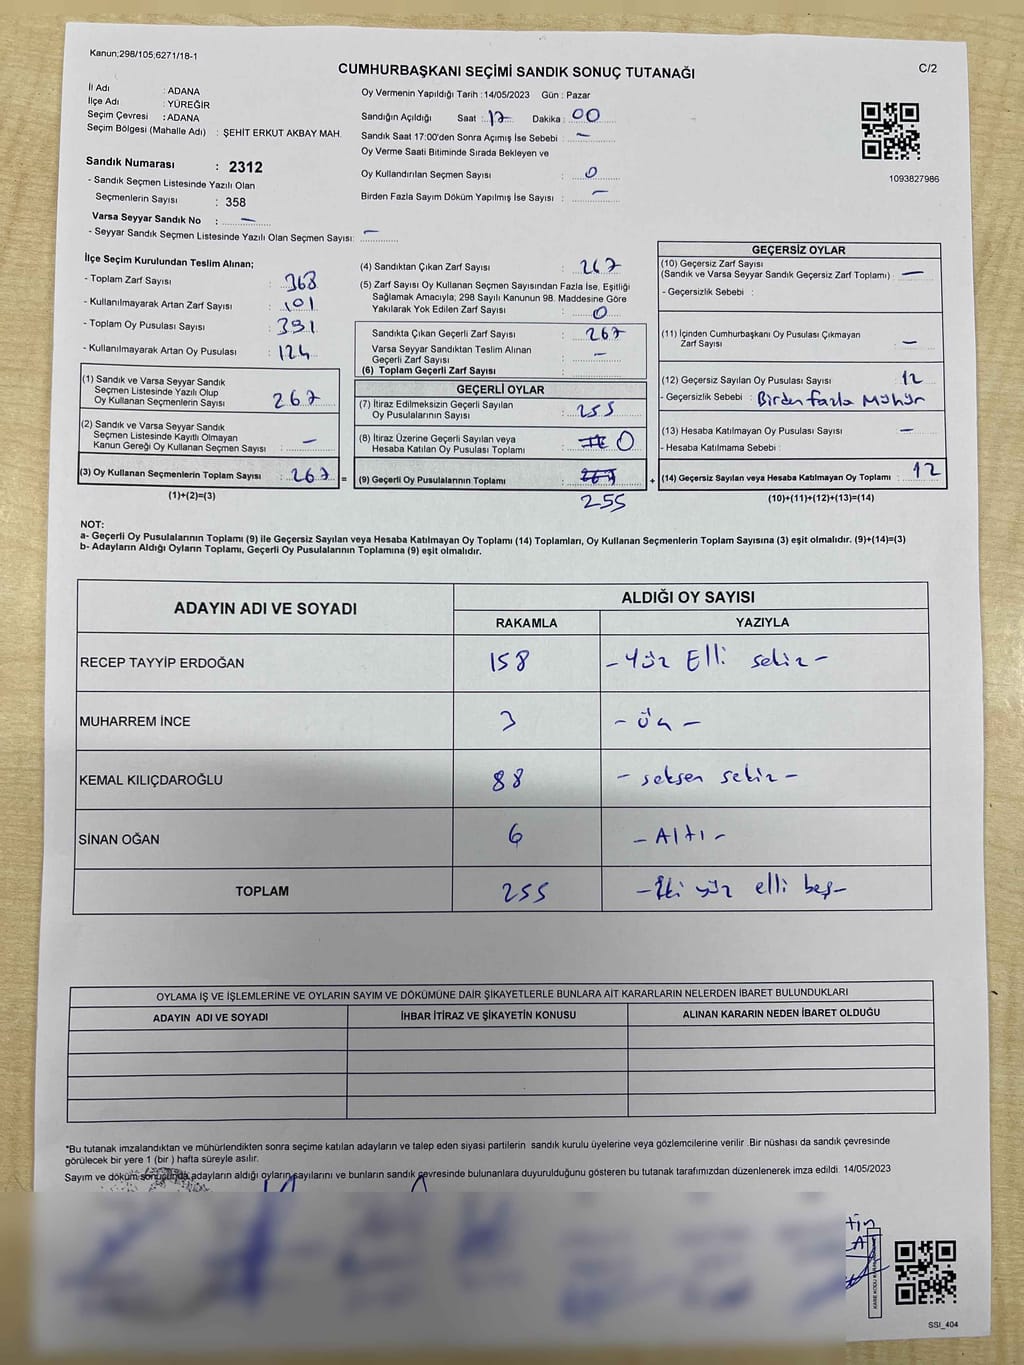 Kanun;298/105;6271/18-1
CUMHURBAŞKANI SEÇİMİ SANDIK SONUÇ TUTANAĞI
C/2
İl Adı : ADANA
İlçe Adı : YÜREĞİR
Seçim Çevresi : ADANA
Seçim Bölgesi (Mahalle Adı) : ŞEHİT ERKUT AKBAY MAH.
Sandık Numarası : 2312
- Sandık Seçmen Listesinde Yazılı Olan
Seçmenlerin Sayısı : 358
Varsa Seyyar Sandık No : —
- Seyyar Sandık Seçmen Listesinde Yazılı Olan Seçmen Sayısı: —
Oy Vermenin Yapıldığı Tarih :14/05/2023 Gün : Pazar
Sandığın Açıldığı Saat : 17 Dakika : 00
Sandık Saat 17:00'den Sonra Açımış İse Sebebi : —
Oy Verme Saati Bitiminde Sırada Bekleyen ve
Oy Kullandırılan Seçmen Sayısı : 0
Birden Fazla Sayım Döküm Yapılmış İse Sayısı : —
1093827986
İlçe Seçim Kurulundan Teslim Alınan;
- Toplam Zarf Sayısı : 368
- Kullanılmayarak Artan Zarf Sayısı : 101
- Toplam Oy Pusulası Sayısı : 391
- Kullanılmayarak Artan Oy Pusulası : 124
(1) Sandık ve Varsa Seyyar Sandık
Seçmen Listesinde Yazılı Olup
Oy Kullanan Seçmenlerin Sayısı : 267
(2) Sandık ve Varsa Seyyar Sandık
Seçmen Listesinde Kayıtlı Olmayan
Kanun Gereği Oy Kullanan Seçmen Sayısı : —
(3) Oy Kullanan Seçmenlerin Toplam Sayısı : 267 =
(1)+(2)=(3)
(4) Sandıktan Çıkan Zarf Sayısı : 267
(5) Zarf Sayısı Oy Kullanan Seçmen Sayısından Fazla İse, Eşitliği
Sağlamak Amacıyla; 298 Sayılı Kanunun 98. Maddesine Göre
Yakılarak Yok Edilen Zarf Sayısı : 0
Sandıkta Çıkan Geçerli Zarf Sayısı : 267
Varsa Seyyar Sandıktan Teslim Alınan
Geçerli Zarf Sayısı : —
(6) Toplam Geçerli Zarf Sayısı :
GEÇERLİ OYLAR
(7) İtiraz Edilmeksizin Geçerli Sayılan
Oy Pusulalarının Sayısı : 255
(8) İtiraz Üzerine Geçerli Sayılan veya
Hesaba Katılan Oy Pusulası Toplamı : 0
(9) Geçerli Oy Pusulalarının Toplamı : 267 +
255
GEÇERSİZ OYLAR
(10) Geçersiz Zarf Sayısı
(Sandık ve Varsa Seyyar Sandık Geçersiz Zarf Toplamı) : —
- Geçersizlik Sebebi :
(11) İçinden Cumhurbaşkanı Oy Pusulası Çıkmayan
Zarf Sayısı : —
(12) Geçersiz Sayılan Oy Pusulası Sayısı : 12
- Geçersizlik Sebebi : Birden fazla Mühür
(13) Hesaba Katılmayan Oy Pusulası Sayısı : —
- Hesaba Katılmama Sebebi :
(14) Geçersiz Sayılan veya Hesaba Katılmayan Oy Toplamı : 12
(10)+(11)+(12)+(13)=(14)
NOT:
a- Geçerli Oy Pusulalarının Toplamı (9) ile Geçersiz Sayılan veya Hesaba Katılmayan Oy Toplamı (14) Toplamları, Oy Kullanan Seçmenlerin Toplam Sayısına (3) eşit olmalıdır. (9)+(14)=(3)
b- Adayların Aldığı Oyların Toplamı, Geçerli Oy Pusulalarının Toplamına (9) eşit olmalıdır.
ADAYIN ADI VE SOYADI
ALDIĞI OY SAYISI
RAKAMLA YAZIYLA
RECEP TAYYİP ERDOĞAN 158 - Yüz Elli sekiz -
MUHARREM İNCE 3 - üç -
KEMAL KILIÇDAROĞLU 88 - seksen sekiz -
SİNAN OĞAN 6 - Altı -
TOPLAM 255 - İki yüz elli beş -
OYLAMA İŞ VE İŞLEMLERİNE VE OYLARIN SAYIM VE DÖKÜMÜNE DAİR ŞİKAYETLERLE BUNLARA AİT KARARLARIN NELERDEN İBARET BULUNDUKLARI
ADAYIN ADI VE SOYADI İHBAR İTİRAZ VE ŞİKAYETİN KONUSU ALINAN KARARIN NEDEN İBARET OLDUĞU
*Bu tutanak imzalandıktan ve mühürlendikten sonra seçime katılan adayların ve talep eden siyasi partilerin sandık kurulu üyelerine veya gözlemcilerine verilir .Bir nüshası da sandık çevresinde
görülecek bir yere 1 (bir ) hafta süreyle asılır.
Sayım ve döküm sonucunda adayların aldığı oyların sayılarını ve bunların sandık çevresinde bulunanlara duyurulduğunu gösteren bu tutanak tarafımızdan düzenlenerek imza edildi 14/05/2023
SSI_404